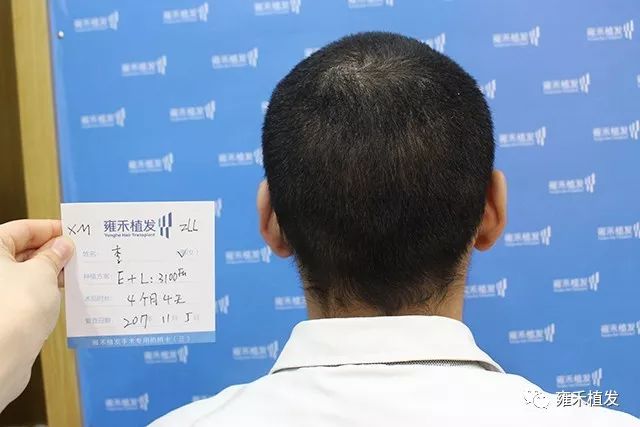 XM 雍禾植发 ZLL
Yonghe Hair Transplant
姓名: 李
种植方案: E+L: 3100
术后时长: 4个月4天
复查日期: 2017 11 5
雍禾植发手术专用拍照卡(三)
雍禾植发
雍禾植发